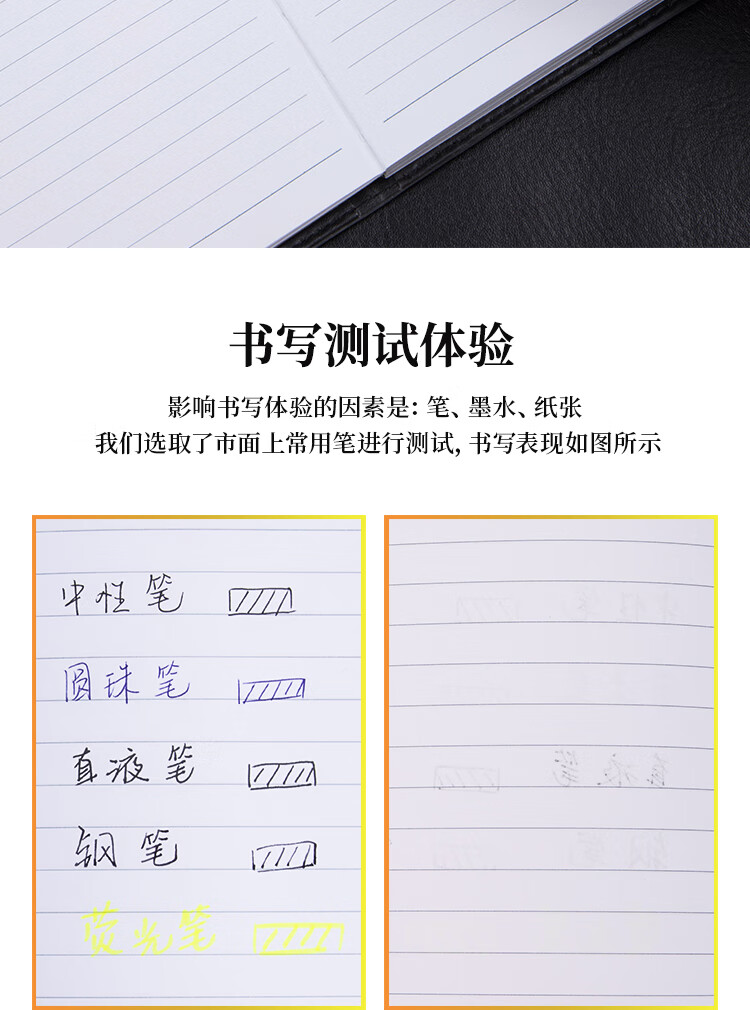 书写测试体验
影响书写体验的因素是：笔、墨水、纸张
我们选取了市面上常用笔进行测试，书写表现如图所示
中性笔
圆珠笔
直液笔
钢笔
荧光笔
中性笔
直液笔
钢笔